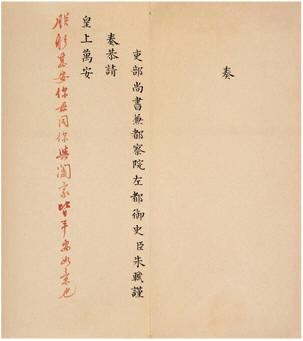 奏
吏部尚書兼都察院左都御史臣朱軾謹
奏恭請
皇上萬安
朕躬甚安你同你闔家皆平安如意也